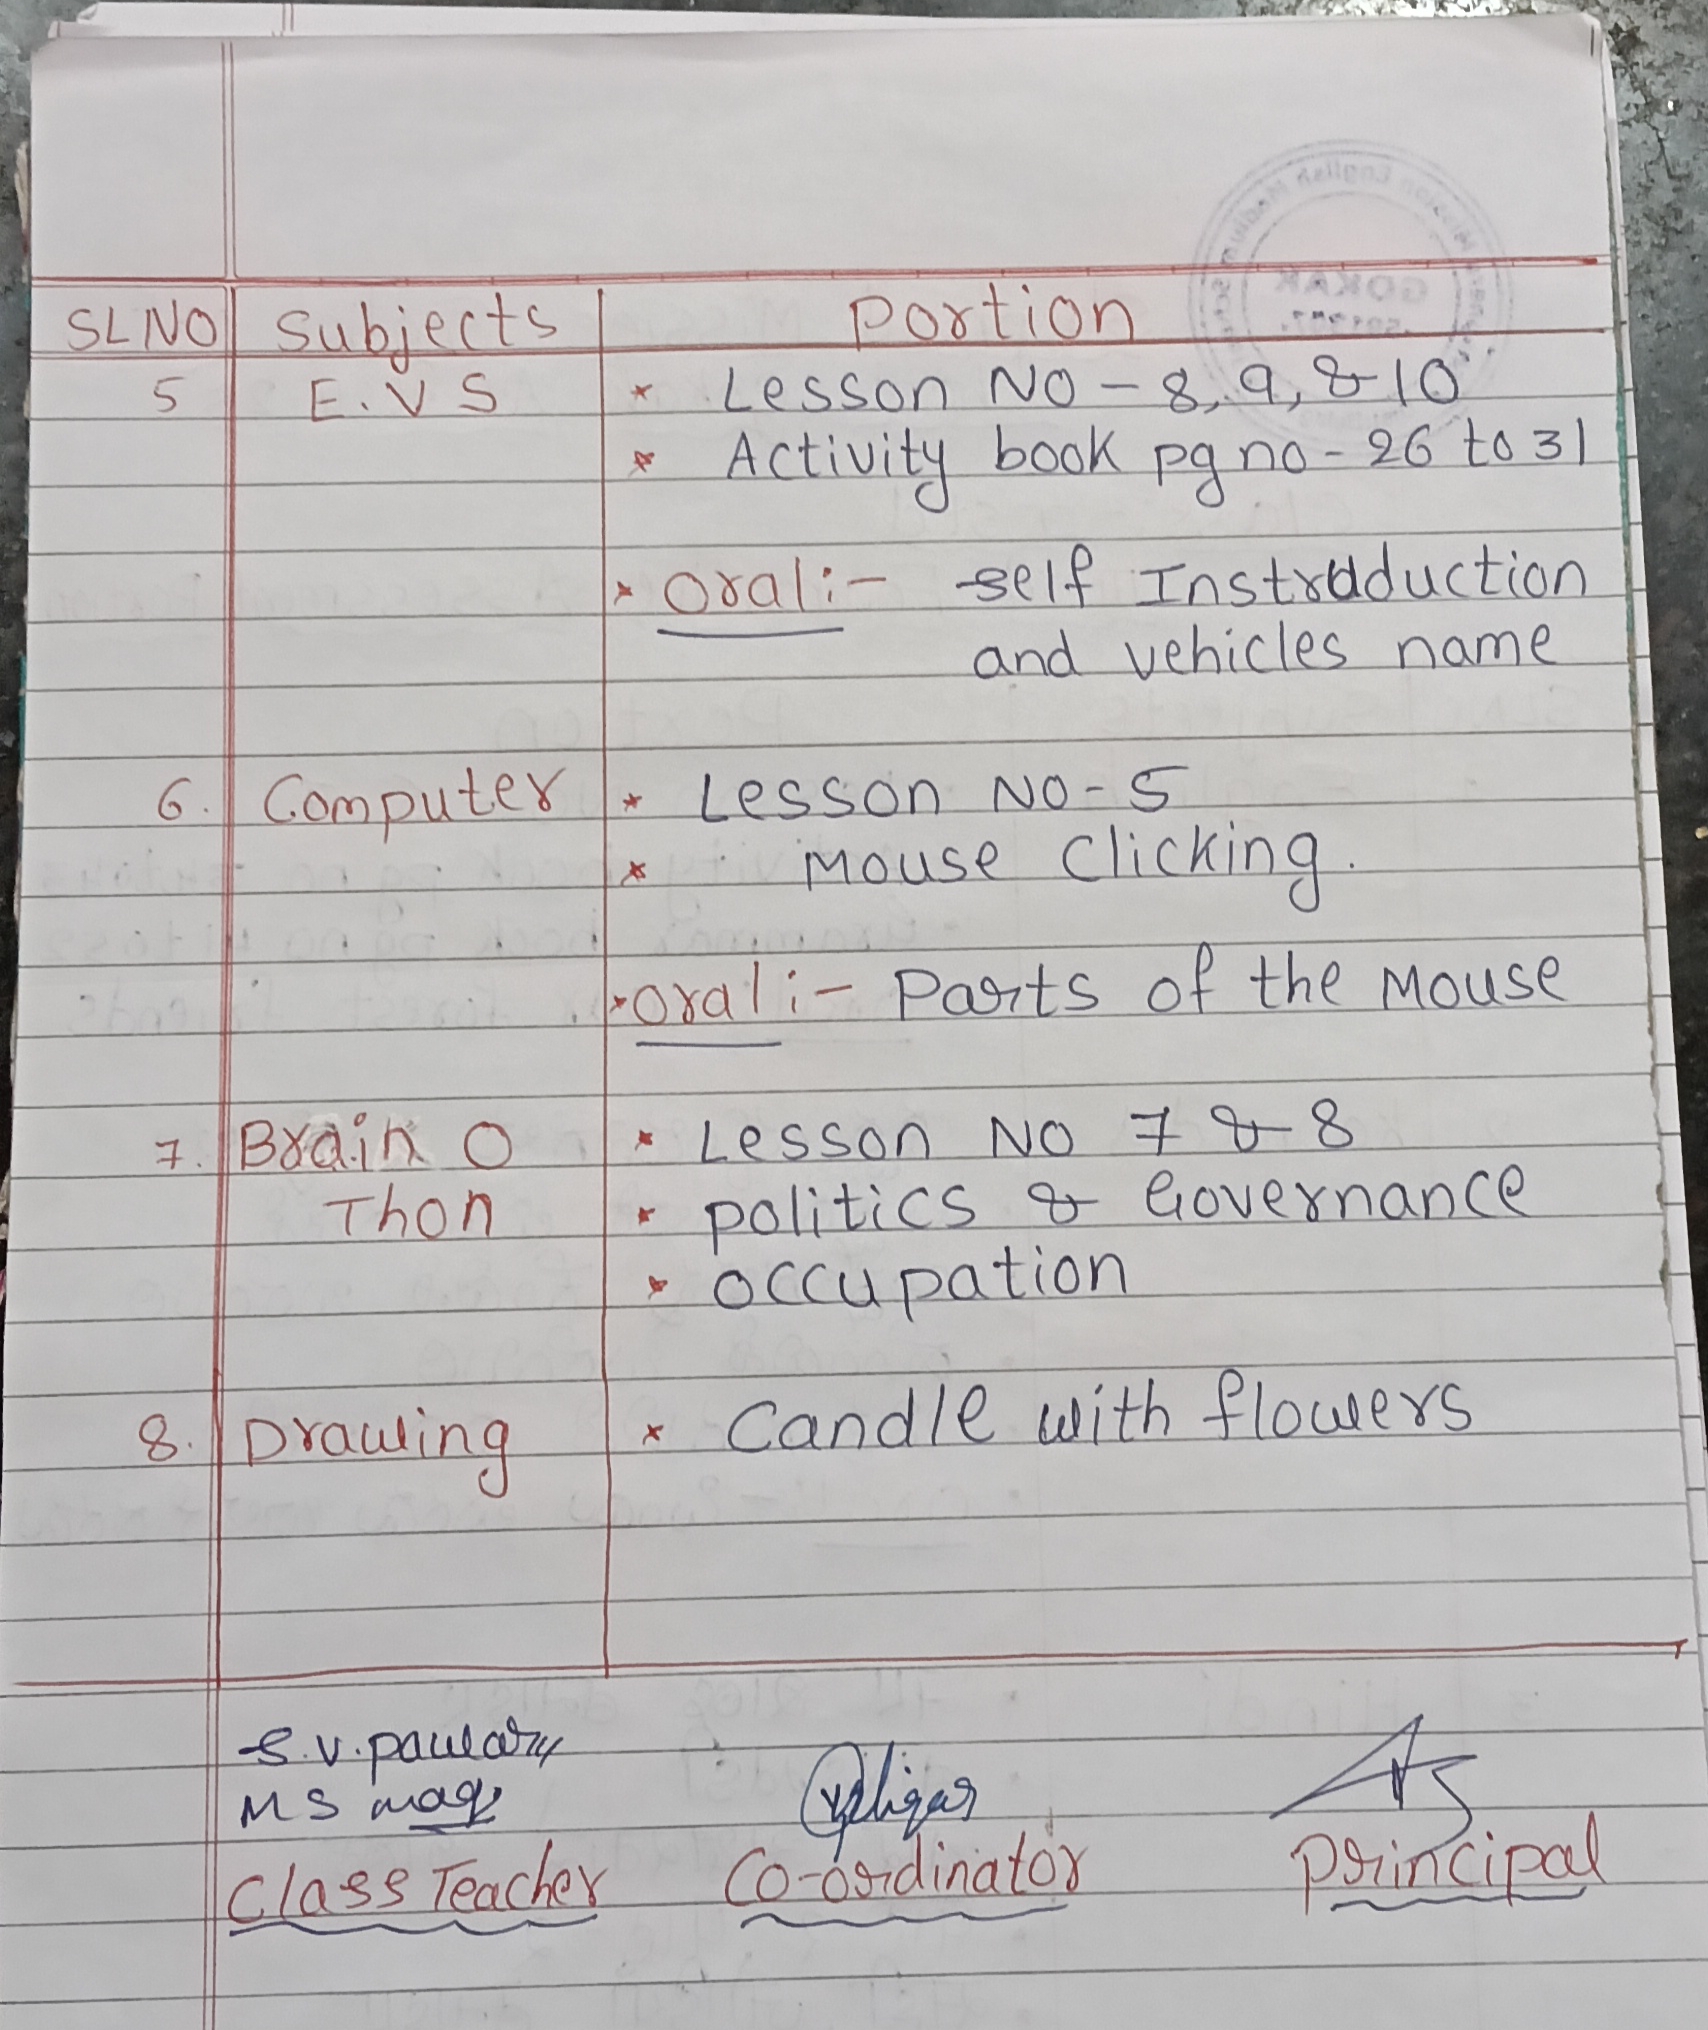 SLNO Subjects Portion
5 E.V.S * Lesson NO - 8, 9, & 10
* Activity book pg no - 26 to 31
* Oral :- self Instroduction
and vehicles name
6. Computer * Lesson NO - 5
* Mouse Clicking.
* Oral :- Parts of the Mouse
7. Brain O * Lesson NO 7 & 8
Thon * politics & Governance
* occupation
8. Drawing * Candle with flowers
S.V. pawar
MS
Class Teacher Co-ordinator Principal